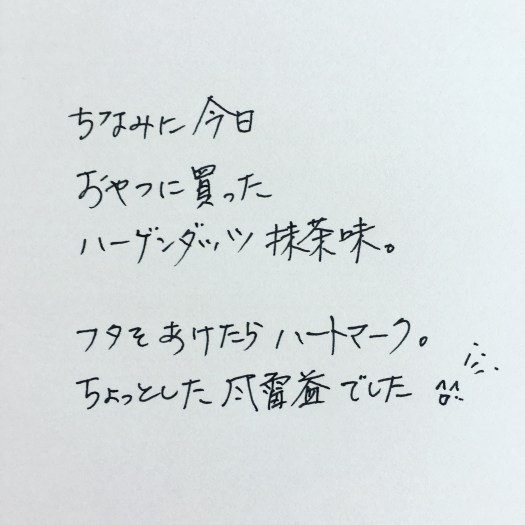 ちなみに今日
おやつに買った
ハーゲンダッツ 抹茶味。
フタをあけたら ハートマーク。
ちょっとした でした ^^